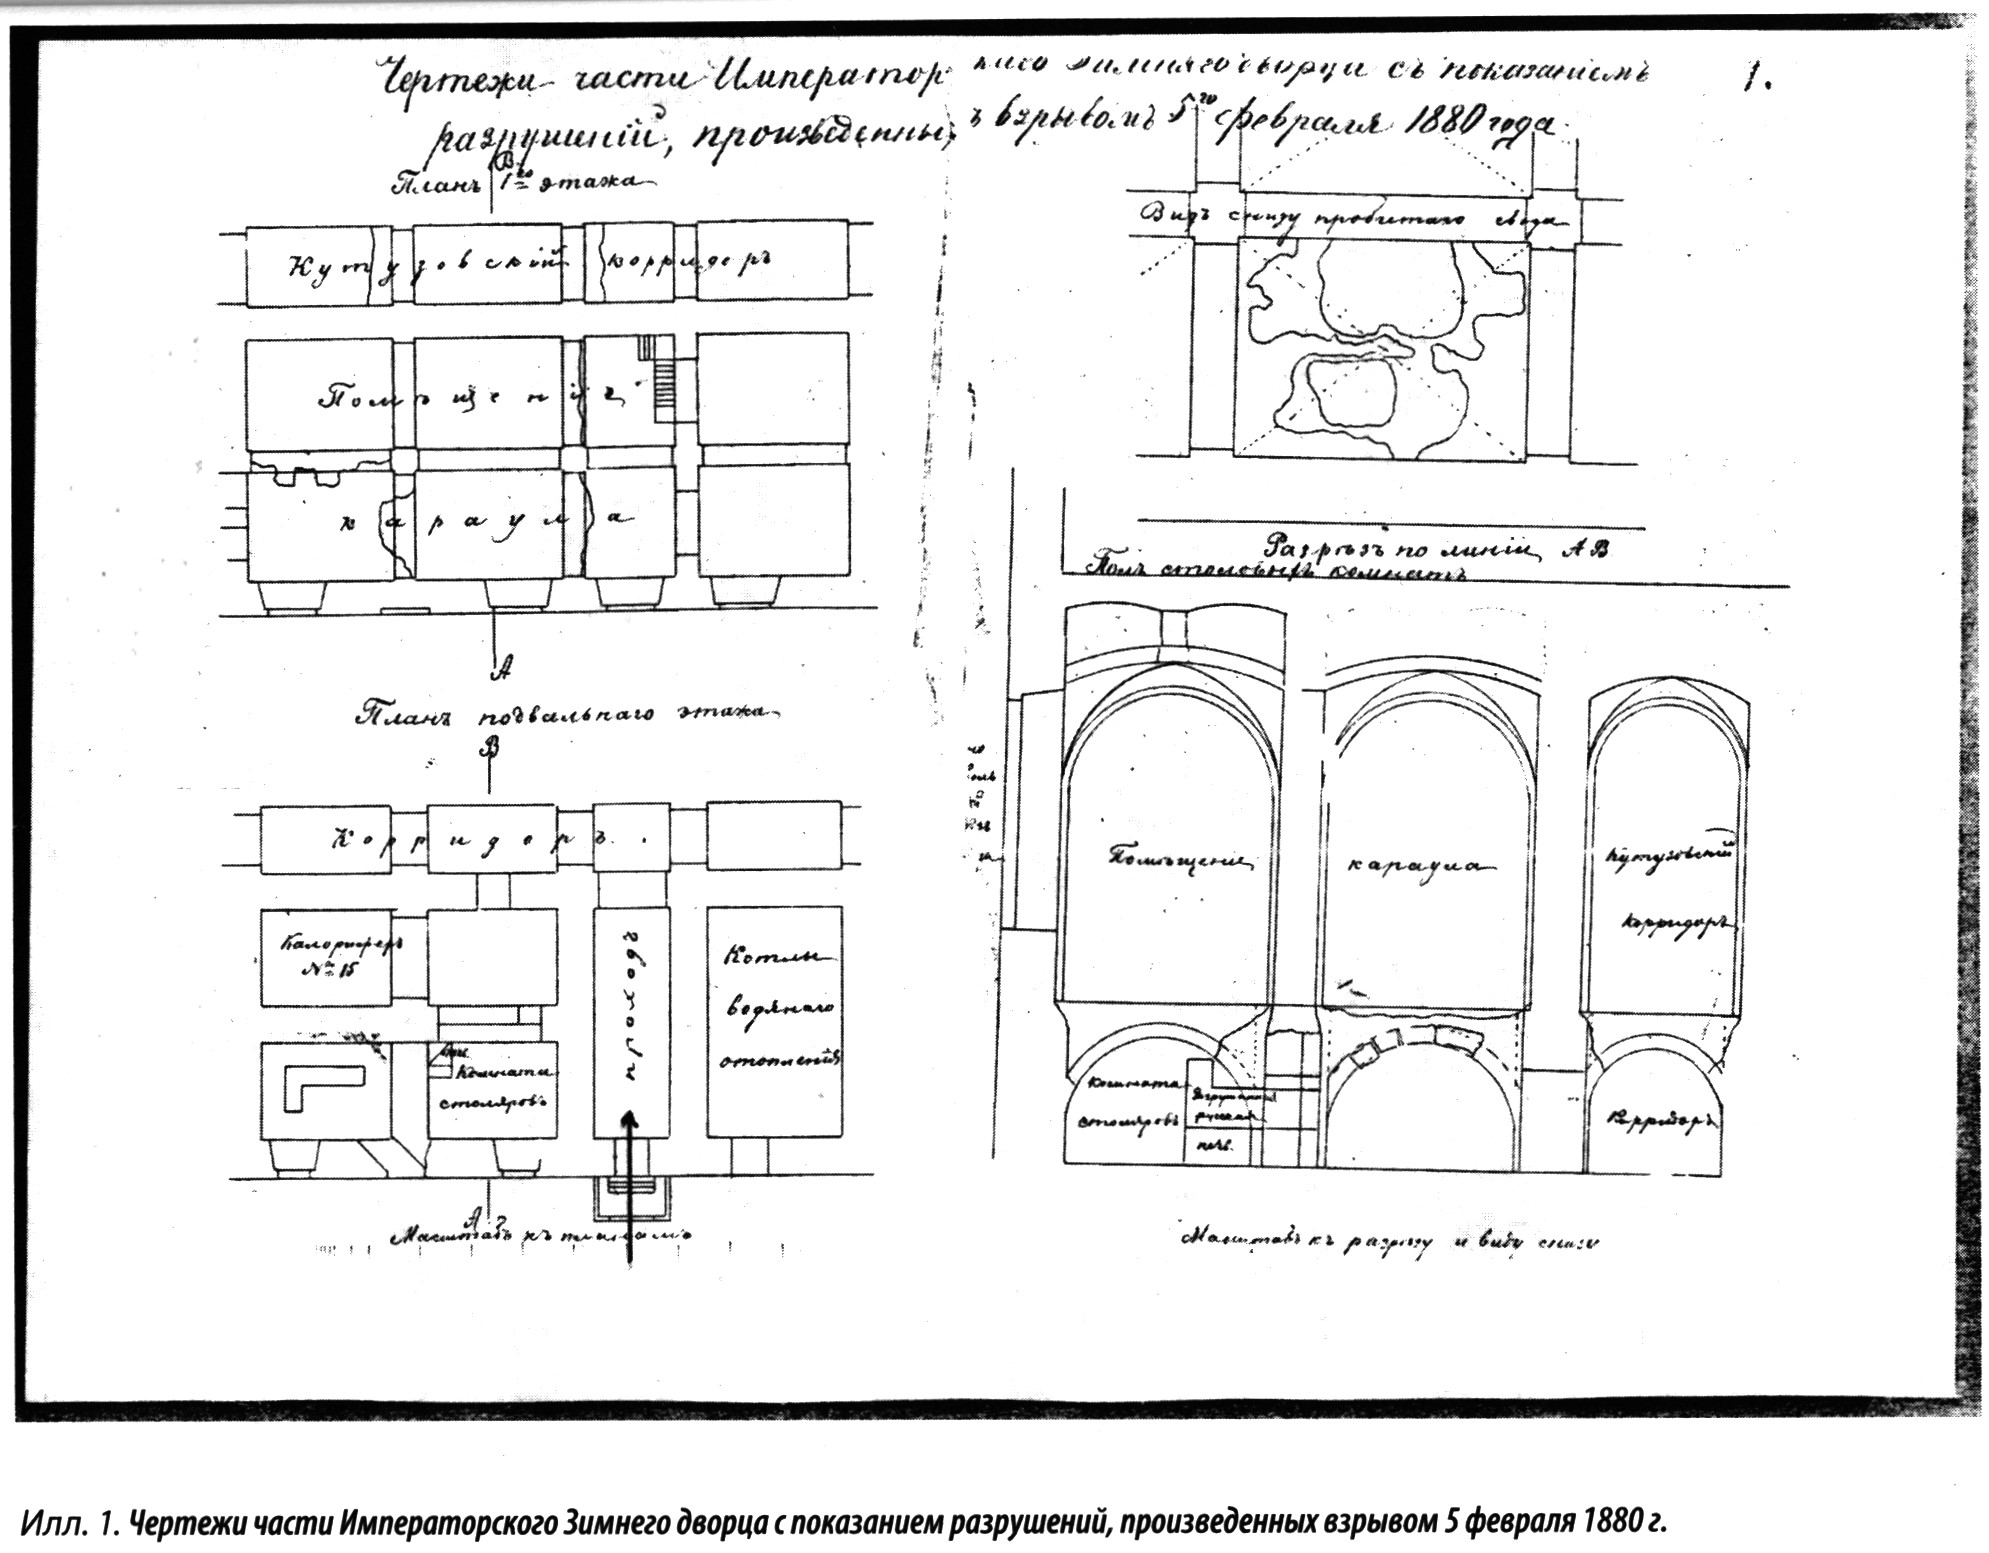 Чертежи части Императорскаго Зимняго дворца съ показаніемъ
1.
разрушеній, произведенныхъ взрывомъ 5го февраля 1880 года.
В.
Планъ 1го этажа
Кутузовскій корридоръ
Помѣщенія
караула
А
Планъ подвальнаго этажа
В
Корридоръ.
Калориферъ
№ 15
проходъ
Котлы
водянаго
отопленія
Комната
столяровъ
А
Масштабъ къ планамъ
Видъ снизу пробитаго свода
Разрѣзъ по линіи АВ
Полъ столовыхъ комнатъ
Помѣщеніе
караула
Кутузовскій
корридоръ
Комната
столяровъ
русская
печь.
Корридоръ
Масштабъ къ разрѣзу и виду снизу
Илл. 1. Чертежи части Императорского Зимнего дворца с показанием разрушений, произведенных взрывом 5 февраля 1880 г.